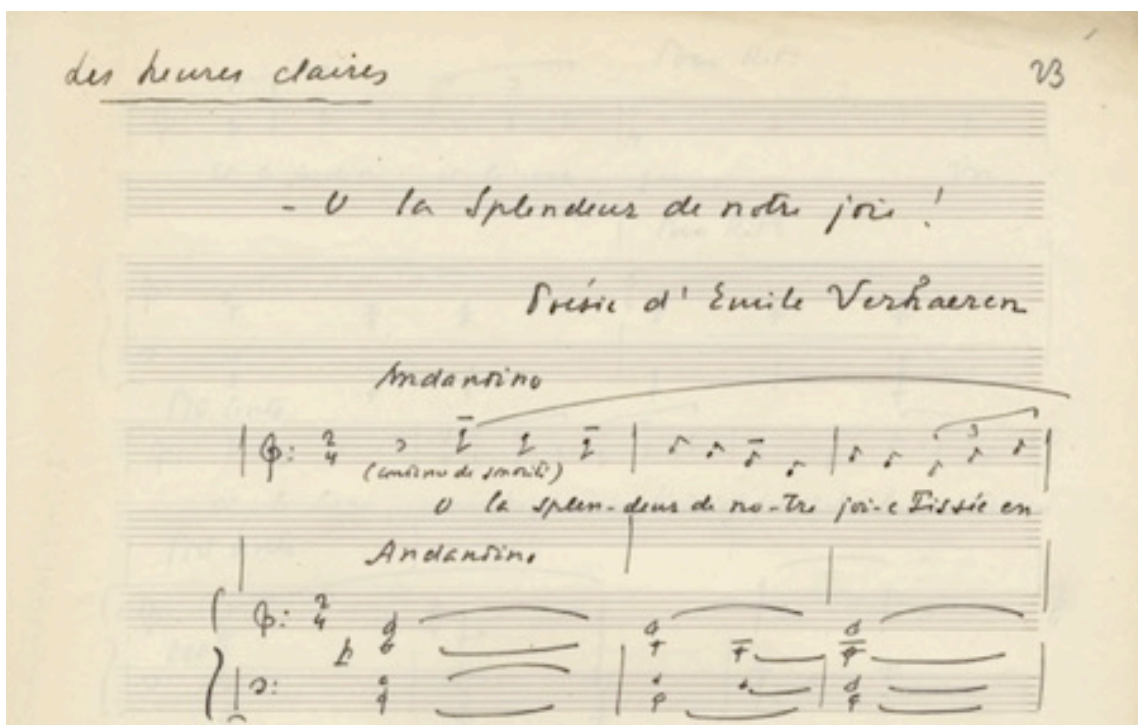 Les heures claires
23
- O la Splendeur de notre joie !
Poésie d' Emile Verhaeren
Andantino
2
4
(continu de sonorité)
3
O la splen-deur de no-tre joi-e Tissée en
Andantino
2
4
p